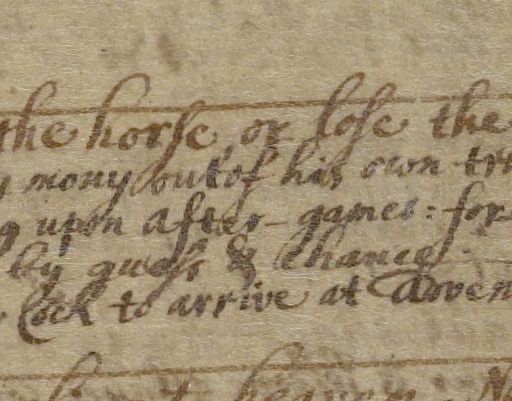 the horse, or lose the
mony out of his own
upon after-games: for
by guess & chance:
Cock to arrive at
heaven